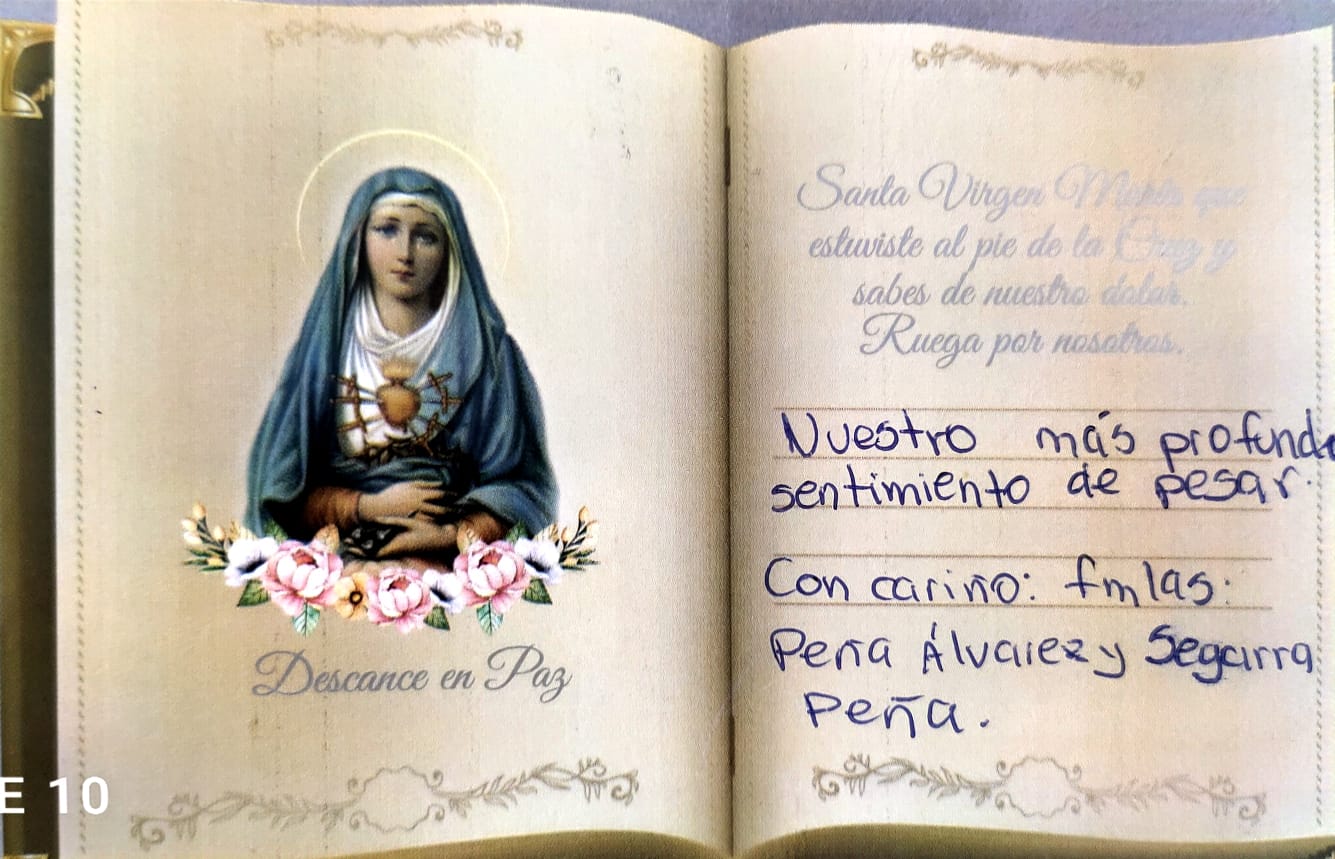 Descance en Paz
Santa Virgen María que
estuviste al pie de la Cruz y
sabes de nuestro dolor.
Ruega por nosotros.
Nuestro más profundo
sentimiento de pesar.
Con cariño: fmlas:
Peña Álvarez y Segarra
Peña.
E 10